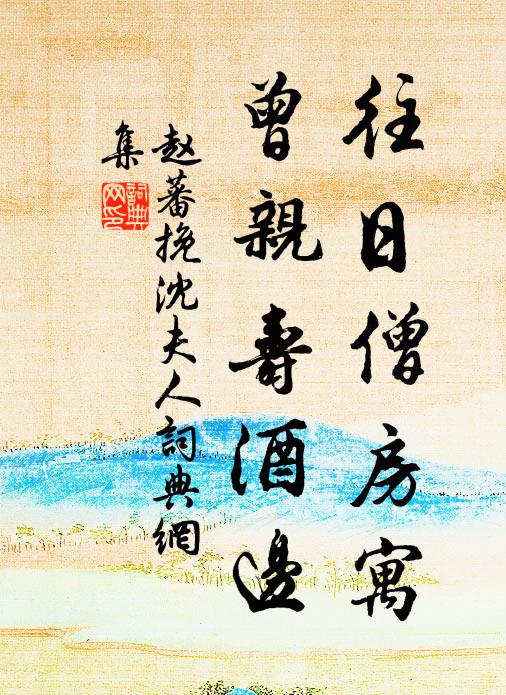 往日僧房寓
曾親壽酒邊
赵蕃挽沈夫人詞典網
集
詞典網印